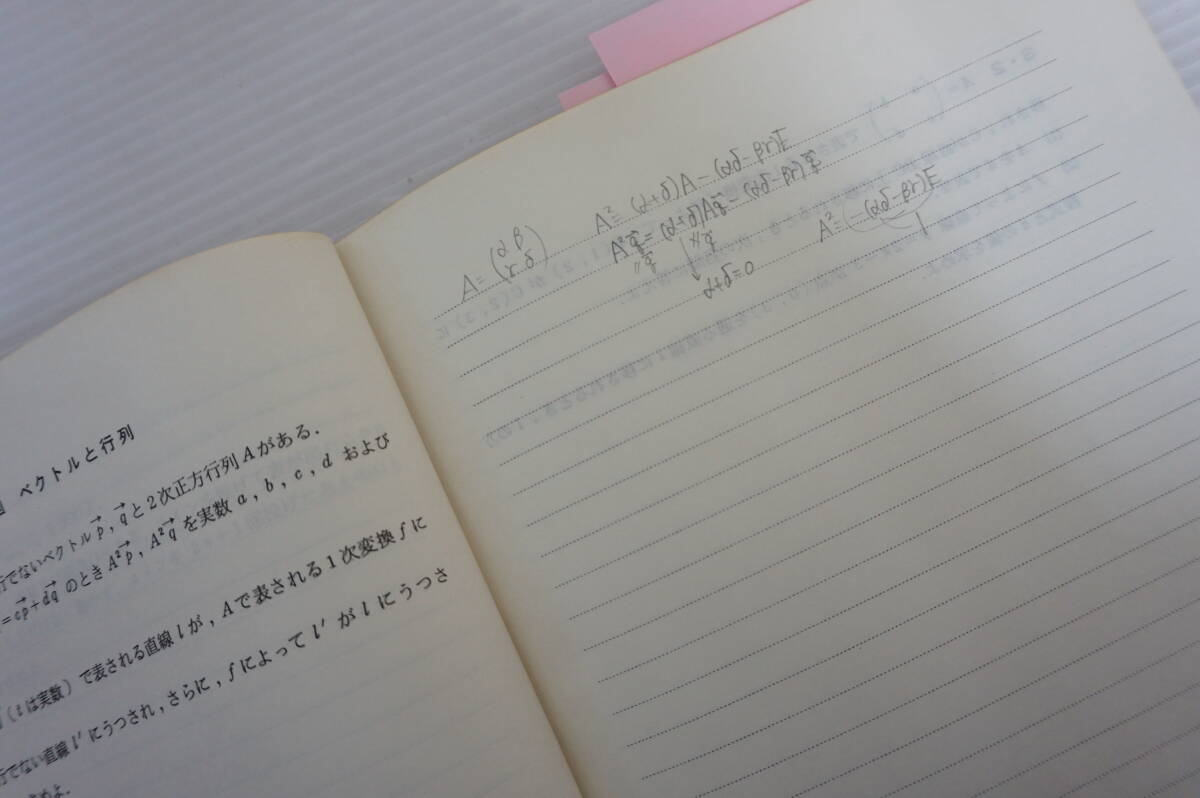 ベクトルと行列
行でないベクトルp⃗, q⃗と2次正方行列Aがある.
=cp⃗+dq⃗ のときA²p⃗, A²q⃗ を実数a, b, c, d および
(tは実数) で表される直線lが, Aで表される1次変換fに
行でない直線l′にうつされ, さらに, fによってl′がlにうつさ
めよ.
A=(α β
γ δ)
A²=(α+δ)A-(αδ-βγ)E
A²q⃗=(α+δ)Aq⃗-(αδ-βγ)q⃗
〃q⃗ ∦q⃗
α+δ=0
A²=-(αδ-βγ)E